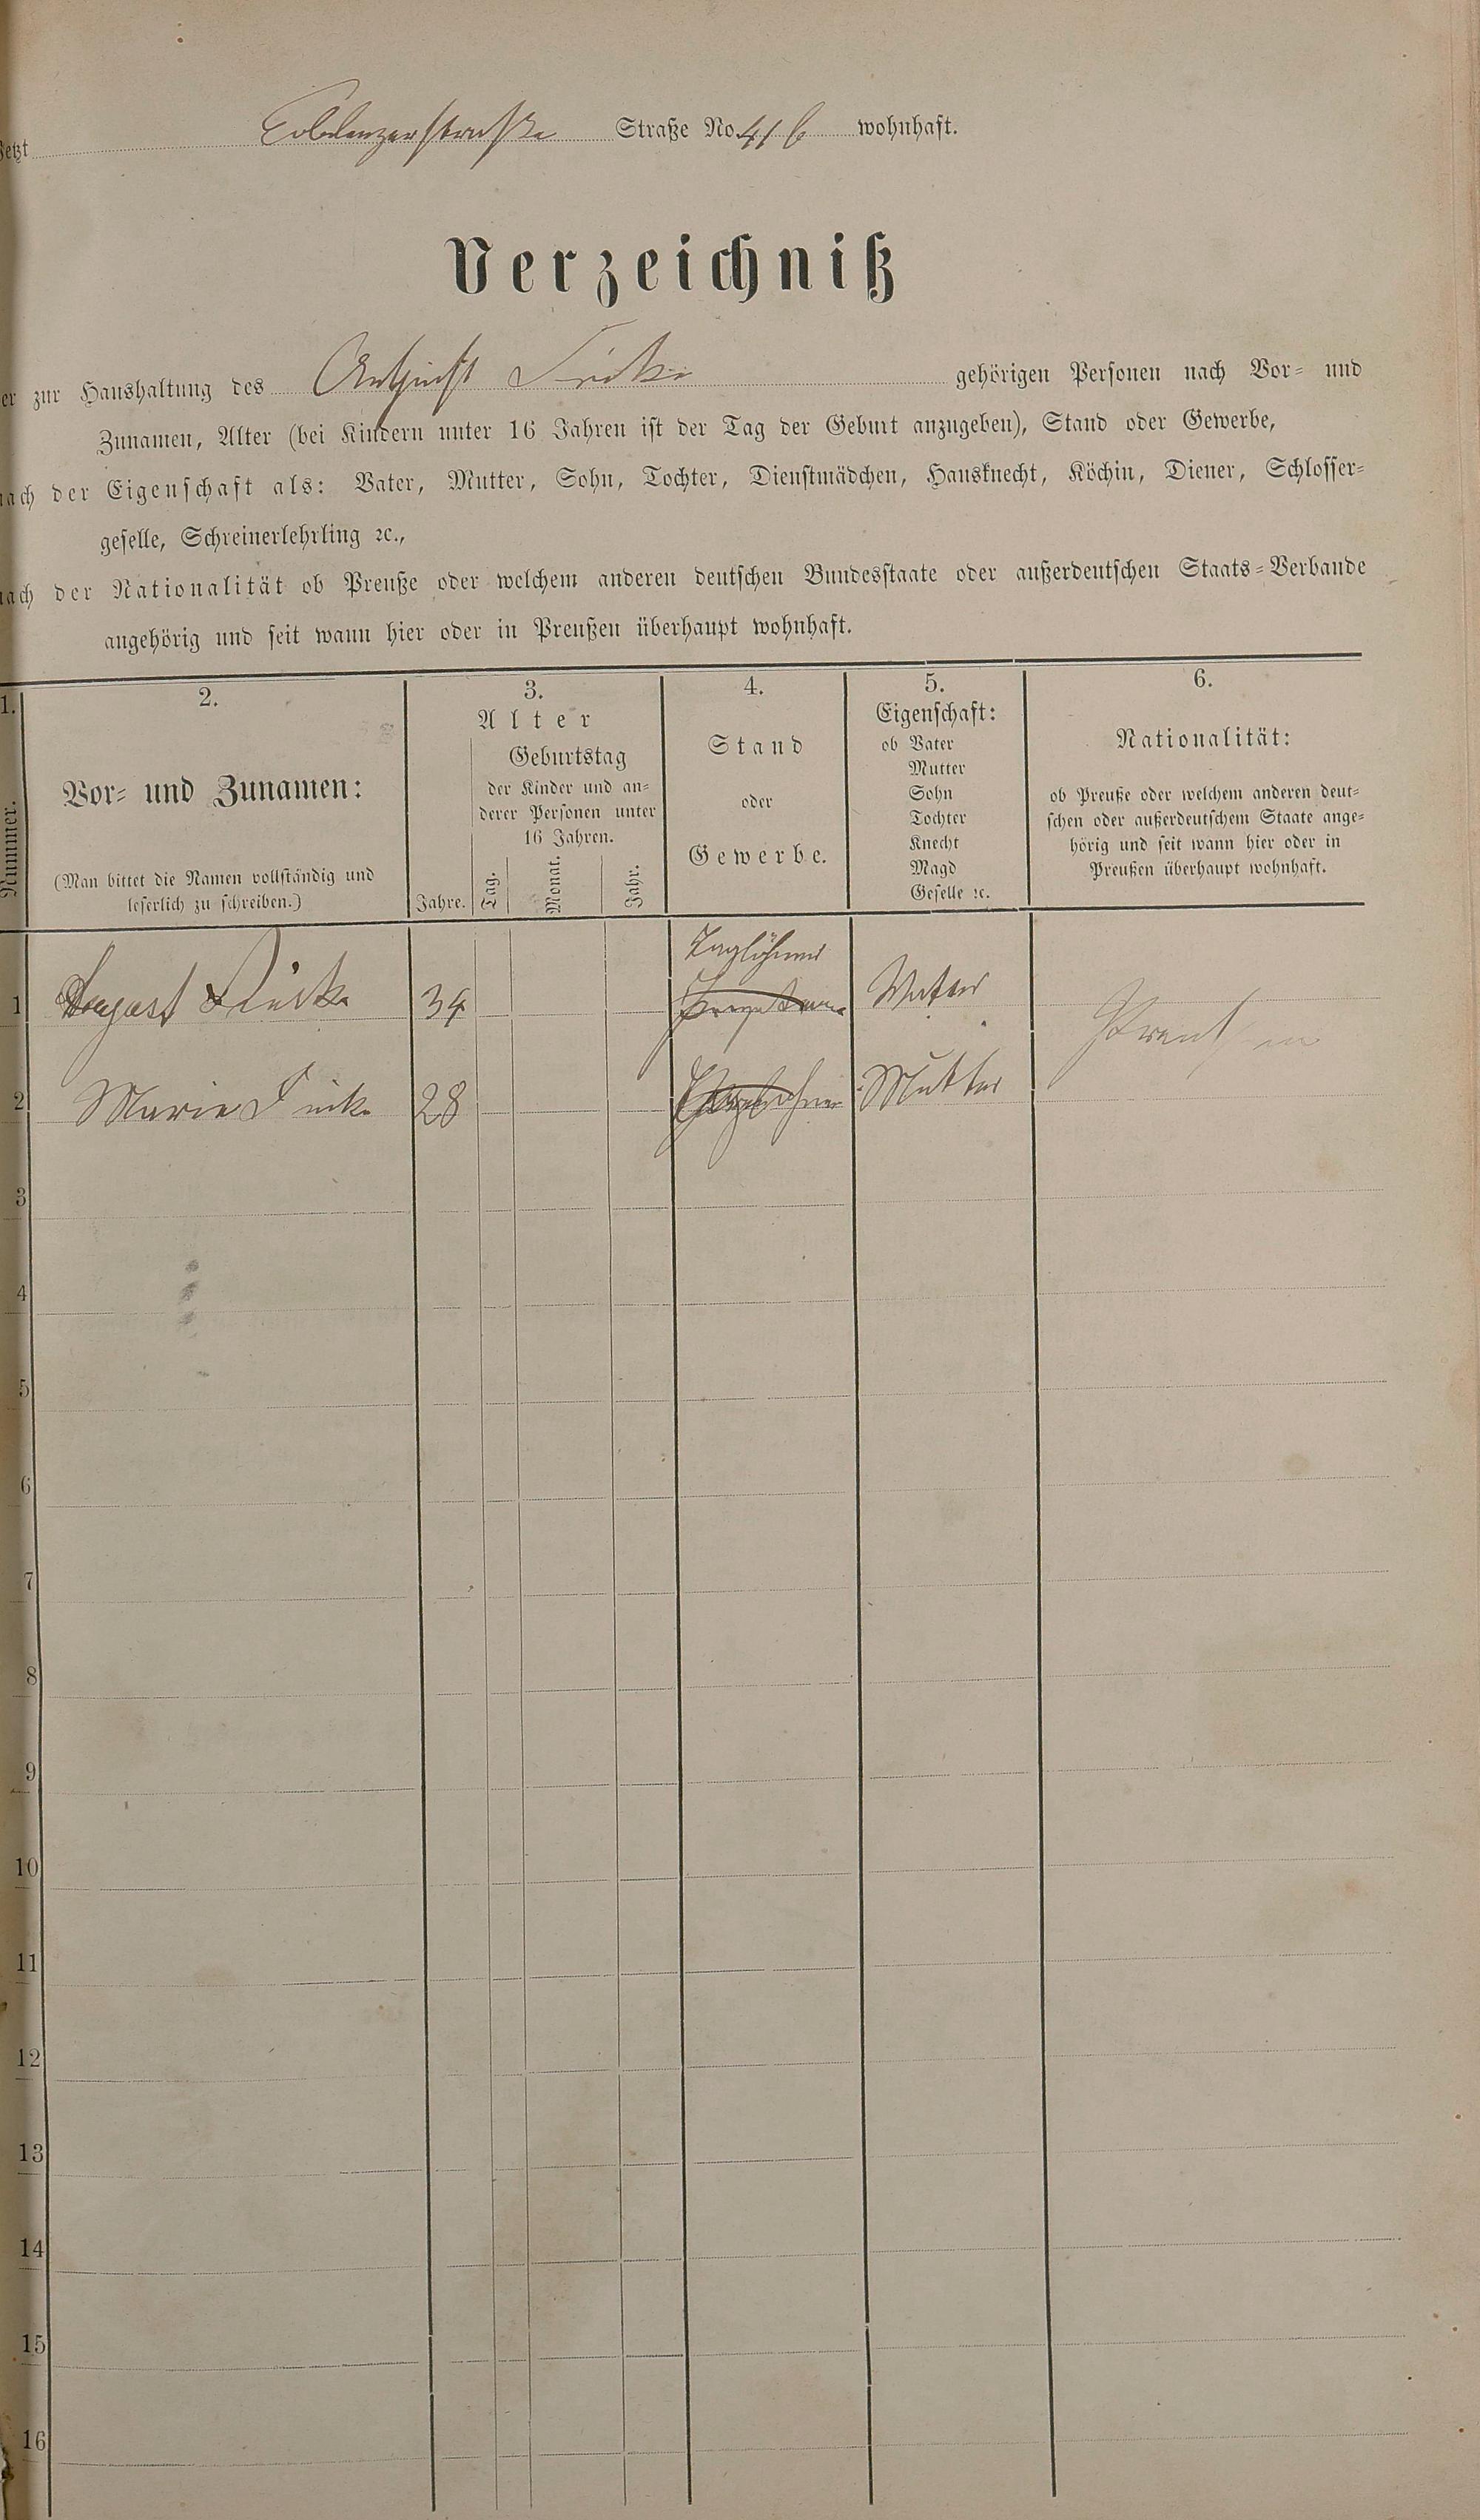 Jetzt Coblenzerstraße Straße No 41 b wohnhaft.
Verzeichniß
er zur Haushaltung des August gehörigen Personen nach Vor- und
Zunamen, Alter (bei Kindern unter 16 Jahren ist der Tag der Geburt anzugeben), Stand oder Gewerbe,
nach der Eigenschaft als: Vater, Mutter, Sohn, Tochter, Dienstmädchen, Hausknecht, Köchin, Diener, Schlosser-
geselle, Schreinerlehrling ꝛc.,
nach der Nationalität ob Preuße oder welchem anderen deutschen Bundesstaate oder außerdeutschen Staats-Verbande
angehörig und seit wann hier oder in Preußen überhaupt wohnhaft.
1.
Nummer.
2.
Vor- und Zunamen:
(Man bittet die Namen vollständig und
leserlich zu schreiben.)
3.
Alter
Jahre.
Geburtstag
der Kinder und an-
derer Personen unter
16 Jahren.
Tag.
Monat.
Jahr.
4.
Stand
oder
Gewerbe.
5.
Eigenschaft:
ob Vater
Mutter
Sohn
Tochter
Knecht
Magd
Geselle ꝛc.
6.
Nationalität:
ob Preuße oder welchem anderen deut-
schen oder außerdeutschem Staate ange-
hörig und seit wann hier oder in
Preußen überhaupt wohnhaft.
Taglöhner
1 August 34 Vater Preußen
2 Marie 28 Mutter
3
4
5
6
7
8
9
10
11
12
13
14
15
16